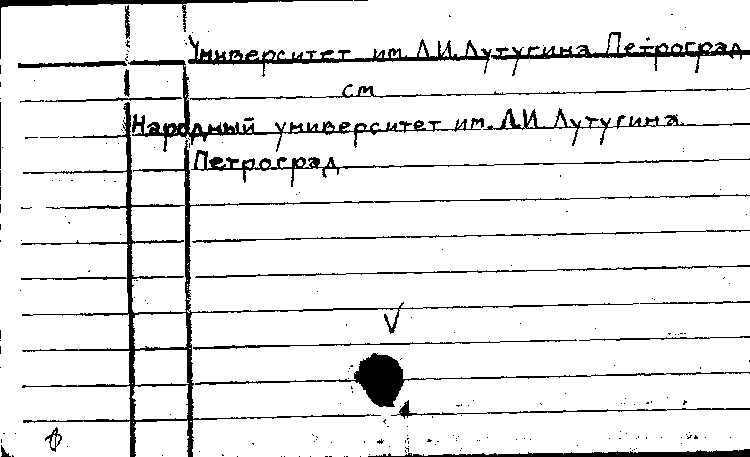 Университет им. Л.И. Лутугина Петроград
см
Народный университет им. Л.И. Лутугина
Петроград